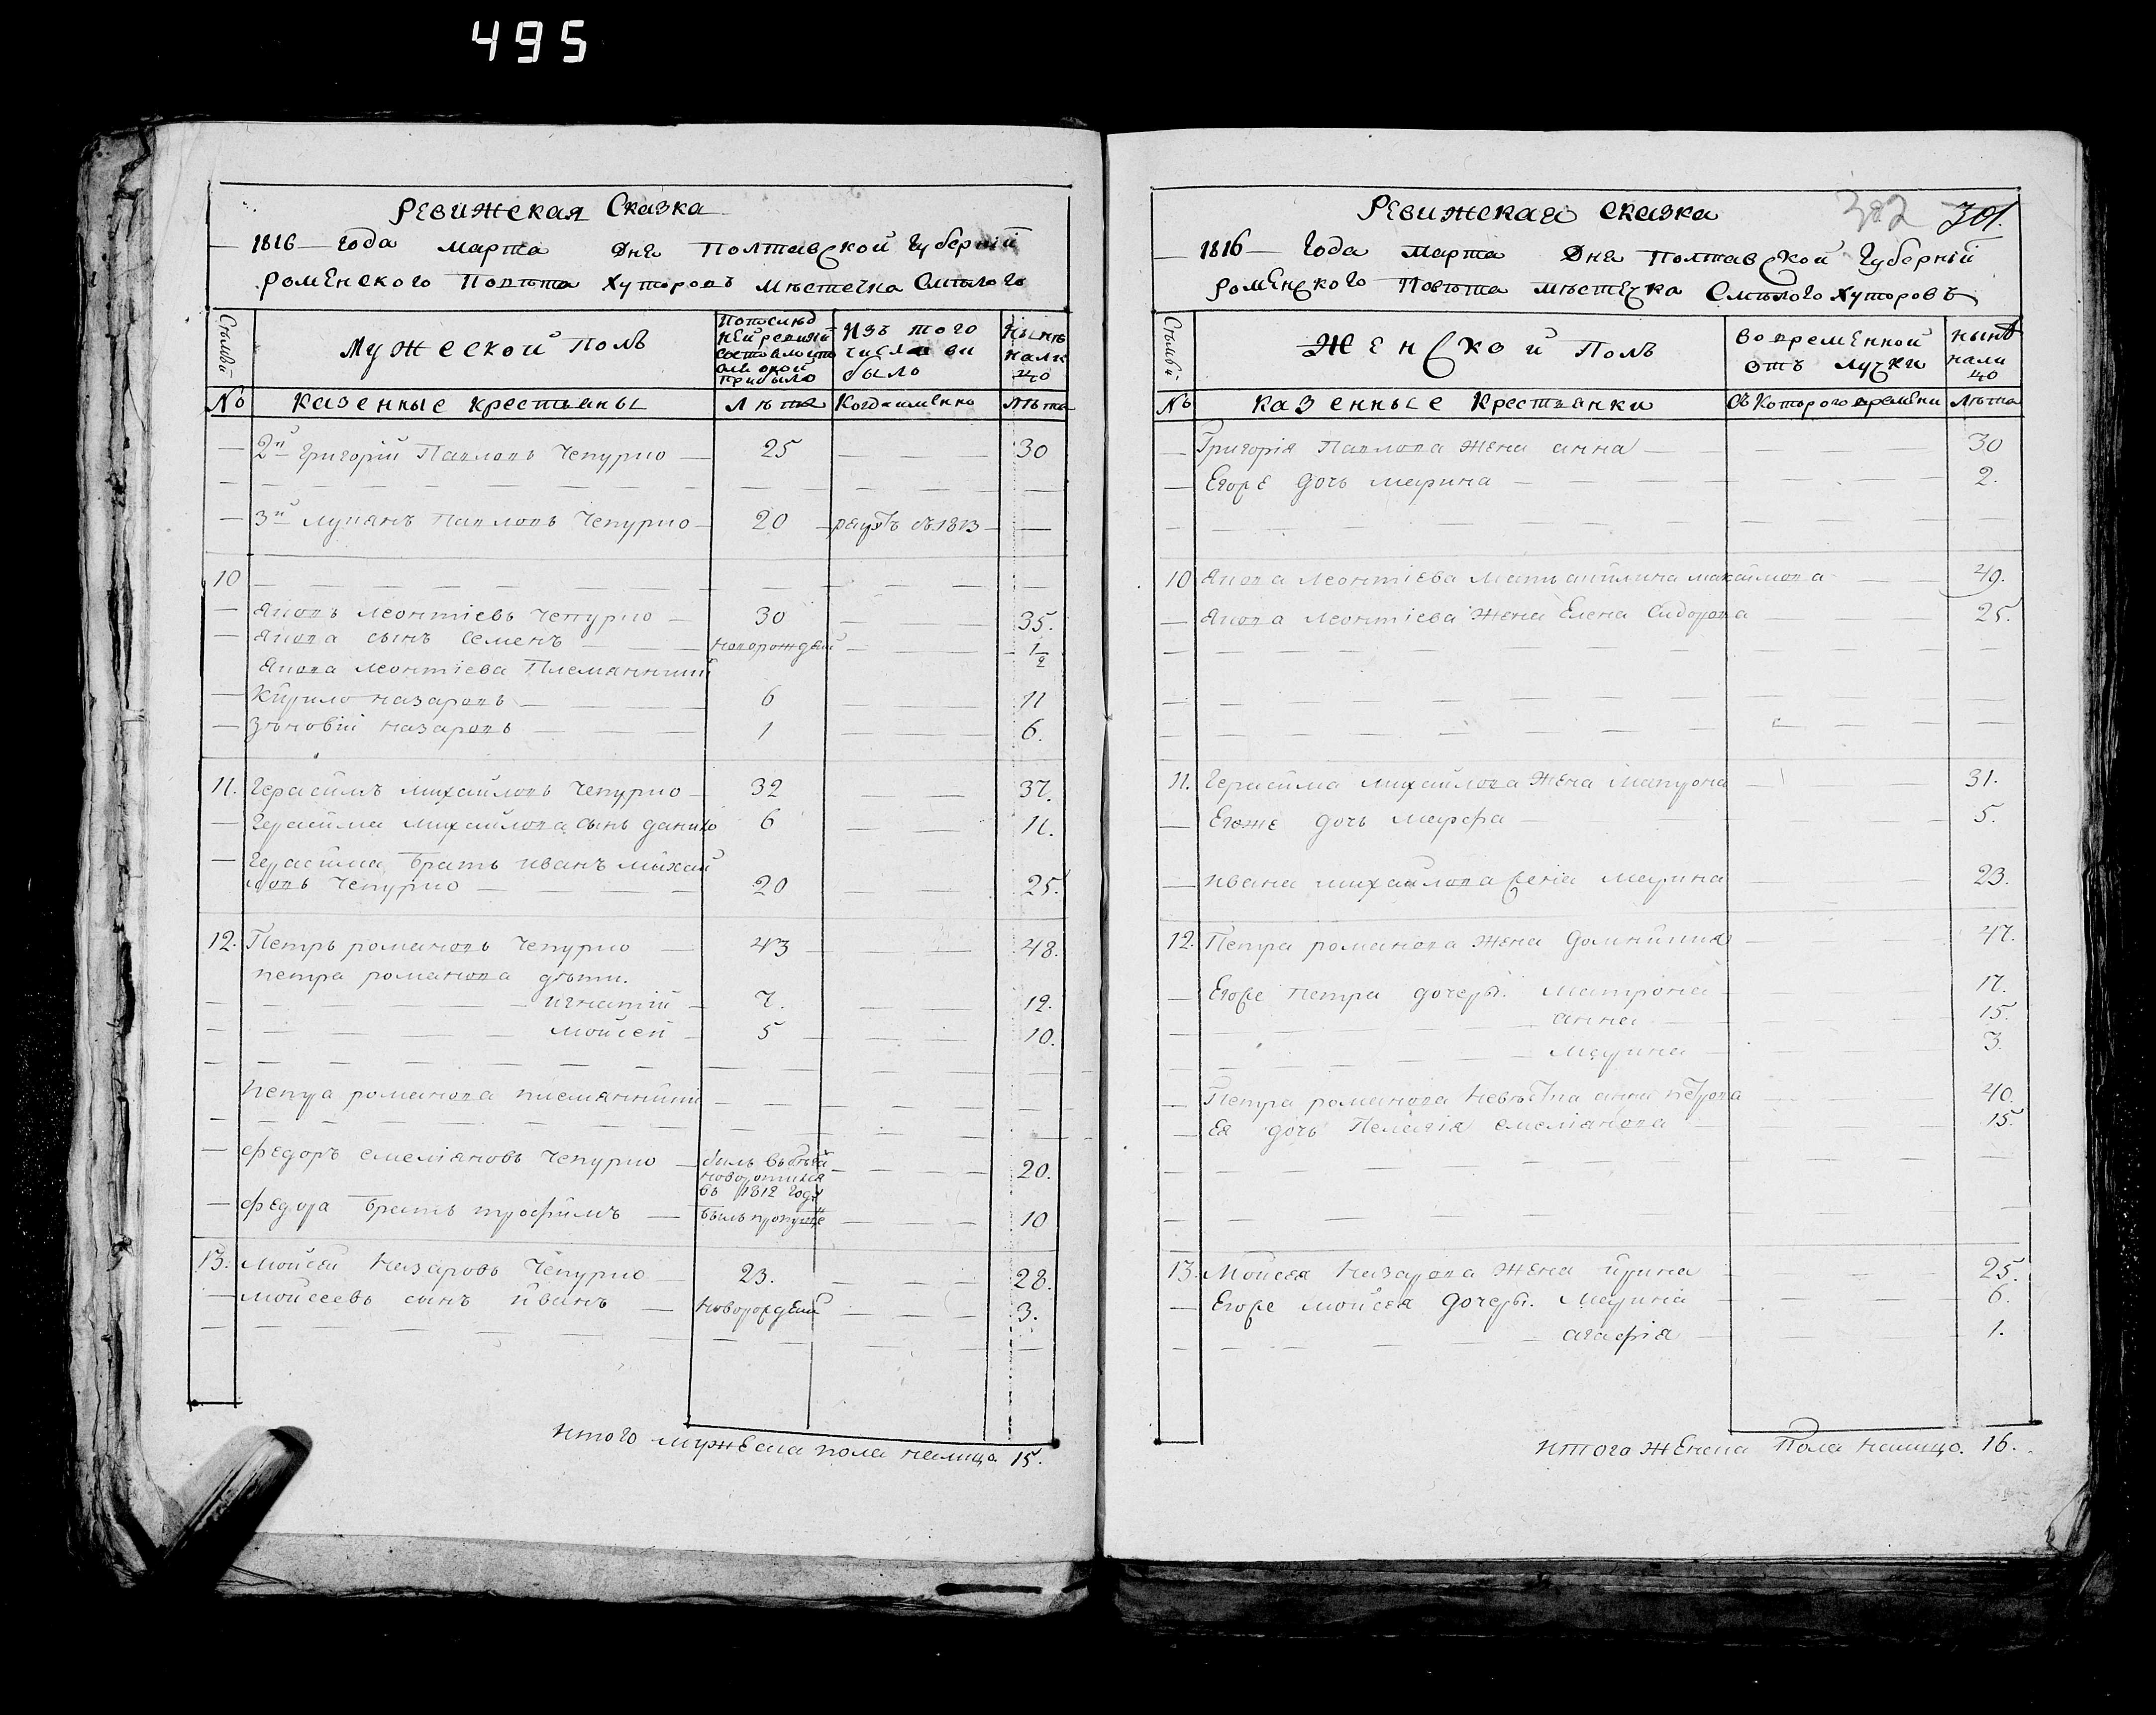 495
Ревижская Сказка
1816 года марта дня Полтавской Губерніи
Роменского Повѣта Хуторовъ мѣстечка Смѣлого
Мужеской Полъ
Попослед
ней ревизіи
состояло и
после оной
прибыло
Изъ того
числа вы
было
Нынѣ
нали
цо
№ казенные крестьяны Лѣта Когда именно Лѣта
2й Григорій Павловъ Чепурно 25 30
3й Лукянъ Павловъ Чепурно 20 съ 1813
10
Яковъ Леонтіевъ Чепурно 30 35.
Якова сынъ Семенъ новорожден 1/2
Якова Леонтіева Племянники
Кирило Назаровъ 6 11
Зѣновій Назаровъ 1 6.
11. Герасимъ Михайловъ Чепурно 32 37.
Герасима Михайлова сынъ Данило 6 11.
Герасима братъ Иванъ Михай
ловъ Чепурно 20 25.
12. Петръ Романовъ Чепурно 43 48.
Петра Романова дѣти.
Игнатій 7. 12.
Мойсей 5 10.
Петра Романова племянники
Федоръ Емеліяновъ Чепурно 20.
въ 1812 году
Федора братъ Трофимъ былъ пропуще 10
13. Мойсей Назаровъ Чепурно 23. 28.
Мойсеевъ сынъ Иванъ новорожден 3.
Итого мужеска пола налицо 15.
Ревижская Сказка 302 301.
1816 Года марта Дня Полтавской Губерніи
Роменского Повѣта мѣстечка Смѣлого Хуторовъ
Женской Полъ
Во временной
отлучки
нынѣ
нали
цо
№ казенные Крестьянки Съ Которого времени Лѣта
Григорія Павлова жена Анна 30
Егоже дочь Марина 2.
10 Якова Леонтіева мать Максимова 49.
Якова Леонтіева Жена Елена Сидорова 25.
11. Герасима Михайлова жена Матрона 31.
Егоже дочь Марфа 5.
Ивана Михайлова жена Марина 23.
12. Петра Романова жена Домникия 47.
Егоже Петра дочеры. Матрона 17.
Анна 15.
Марина 3.
Петра Романова невѣстка Анна Петрова 40.
Ея дочь Пелагія Емеліянова 15.
13. Мойсея Назарова жена Ирина 25.
Егоже Мойсея дочеры. Марина 6.
Агафія 1.
Итого Женска Пола налицо. 16.